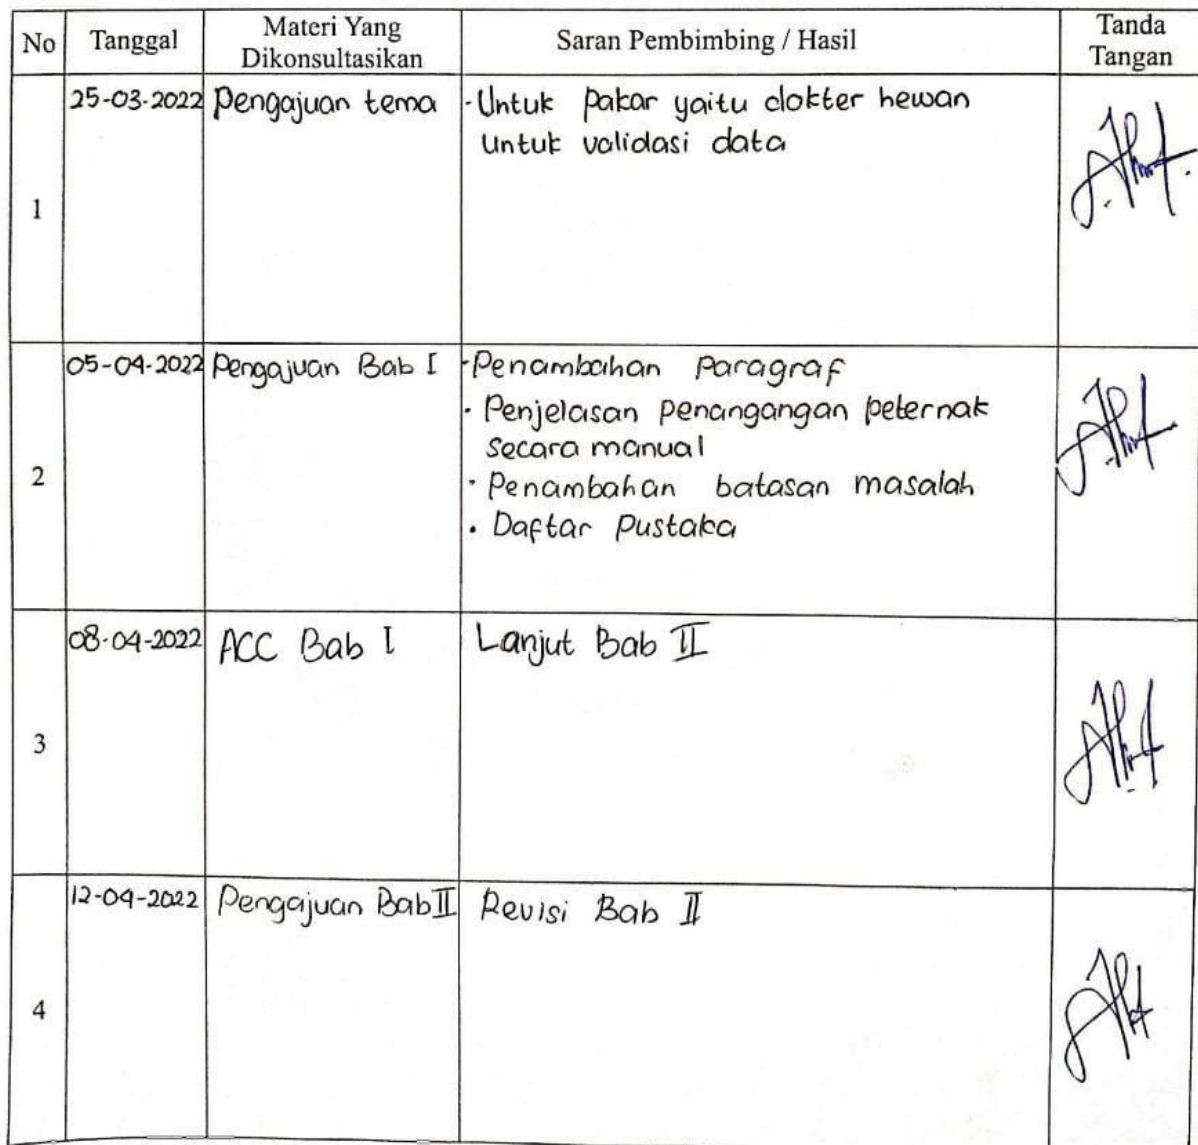 No
Tanggal
Materi Yang
Dikonsultasikan
Saran Pembimbing / Hasil
Tanda
Tangan
1
25-03-2022
Pengajuan tema
- Untuk pakar yaitu dokter hewan
untuk validasi data
2
05-04-2022
Pengajuan Bab I
- Penambahan Paragraf
• Penjelasan penangangan peternak
secara manual
• Penambahan batasan masalah
• Daftar Pustaka
3
08-04-2022
ACC Bab I
Lanjut Bab II
4
12-04-2022
Pengajuan Bab II
Revisi Bab II